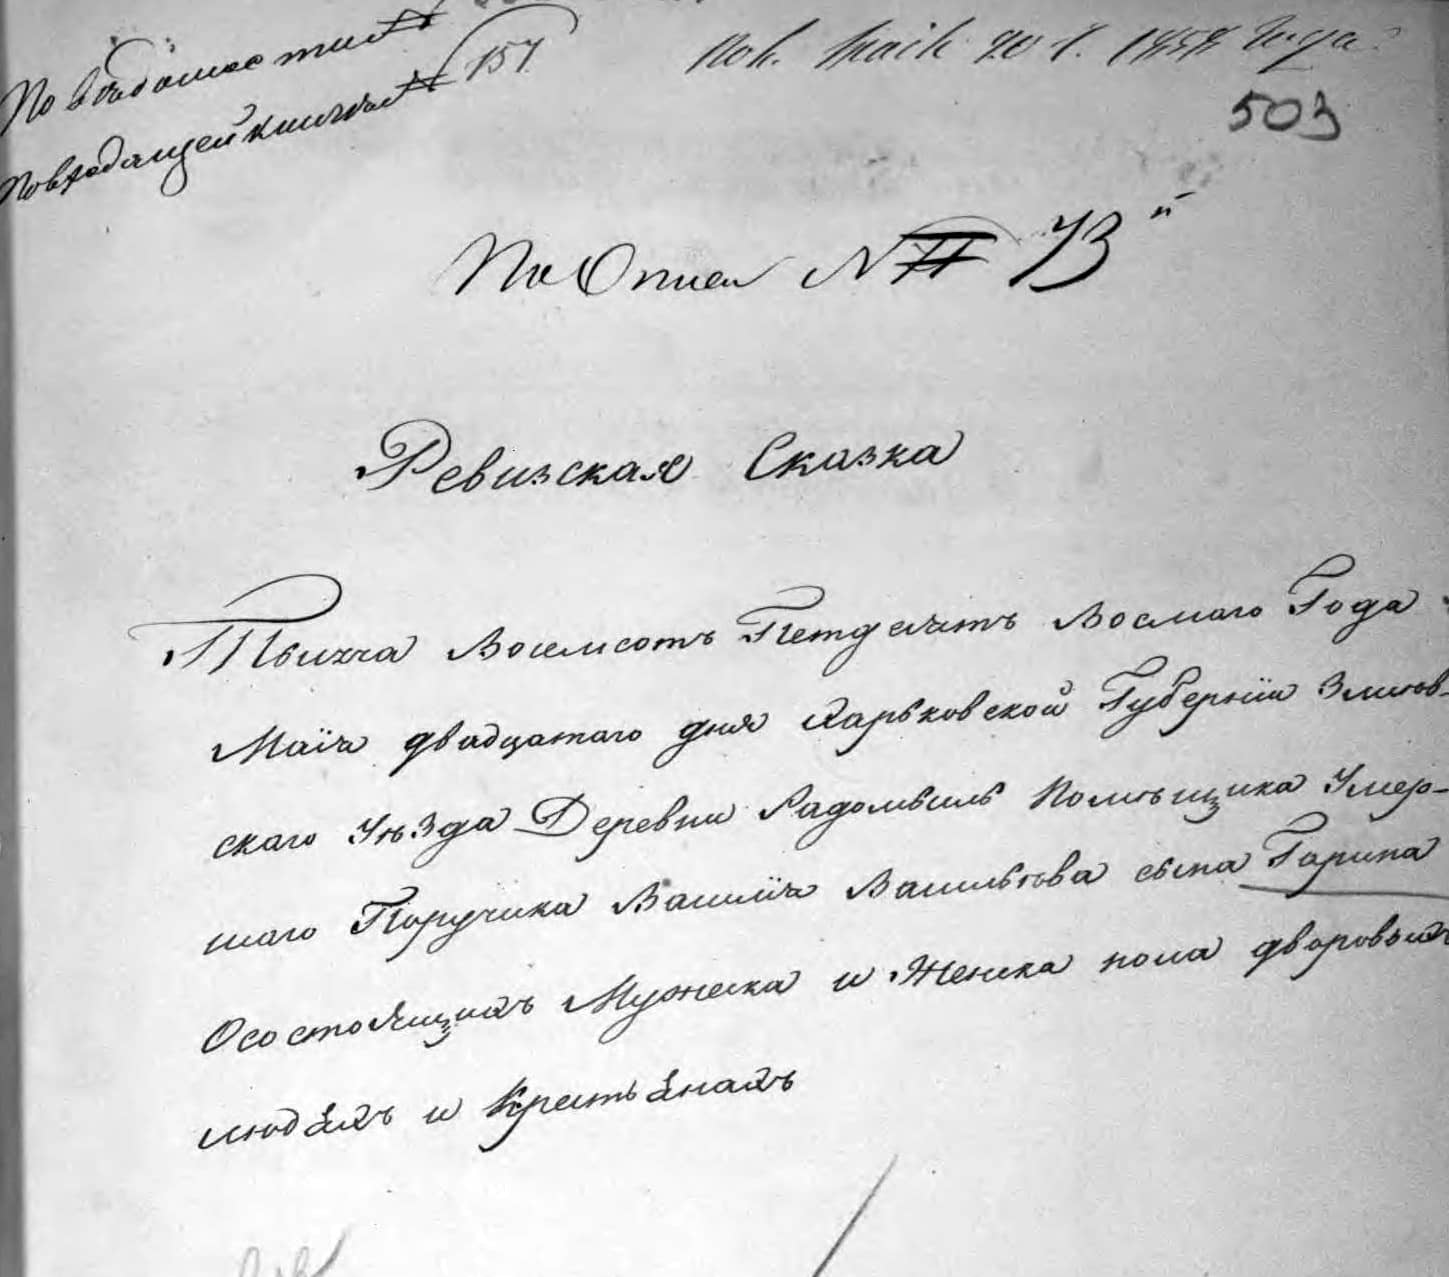 По ведомости №
По входящей книги № 157
Пол. маія 20 д. 1858 года
503
По Описи № 73й
Ревизская Сказка
Тысича Восемсотъ Петдесятъ Восмаго Года
Маія двадцатаго дня Харьковской Губерніи Зміев-
скаго Уѣзда Деревни Радомысль Помѣщика Умер-
шаго Поручика Василія Васильева сына Гарина
О состоящихъ Мужеска и Женска пола дворовыхъ
людяхъ и Крестьянахъ